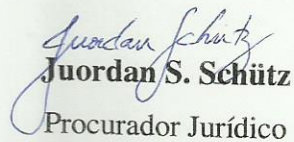 Juordan Schütz
Juordan S. Schütz
Procurador Jurídico